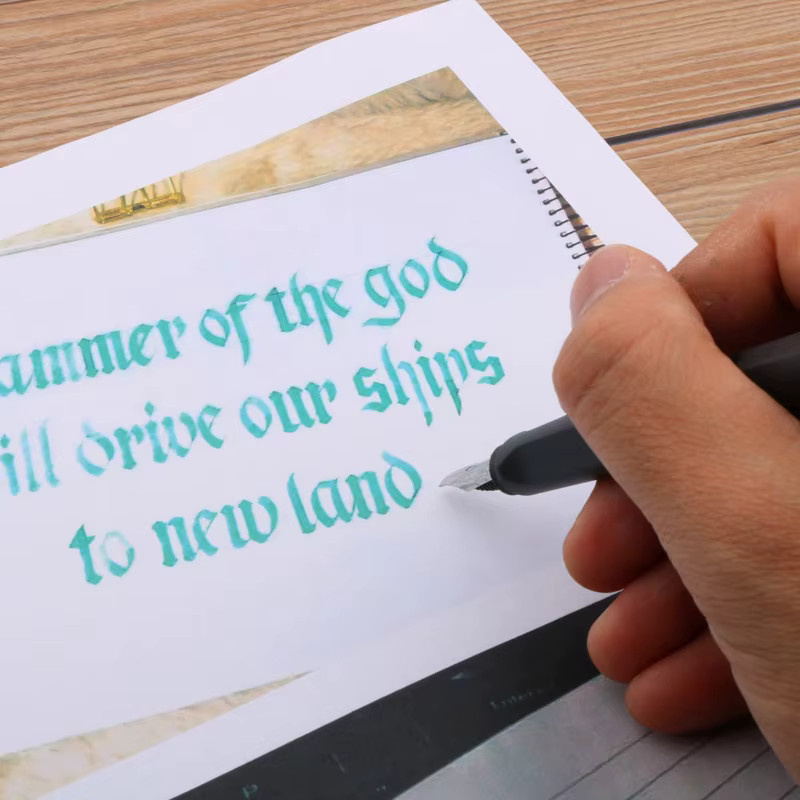 ammer of the god
ill drive our ships
to new land